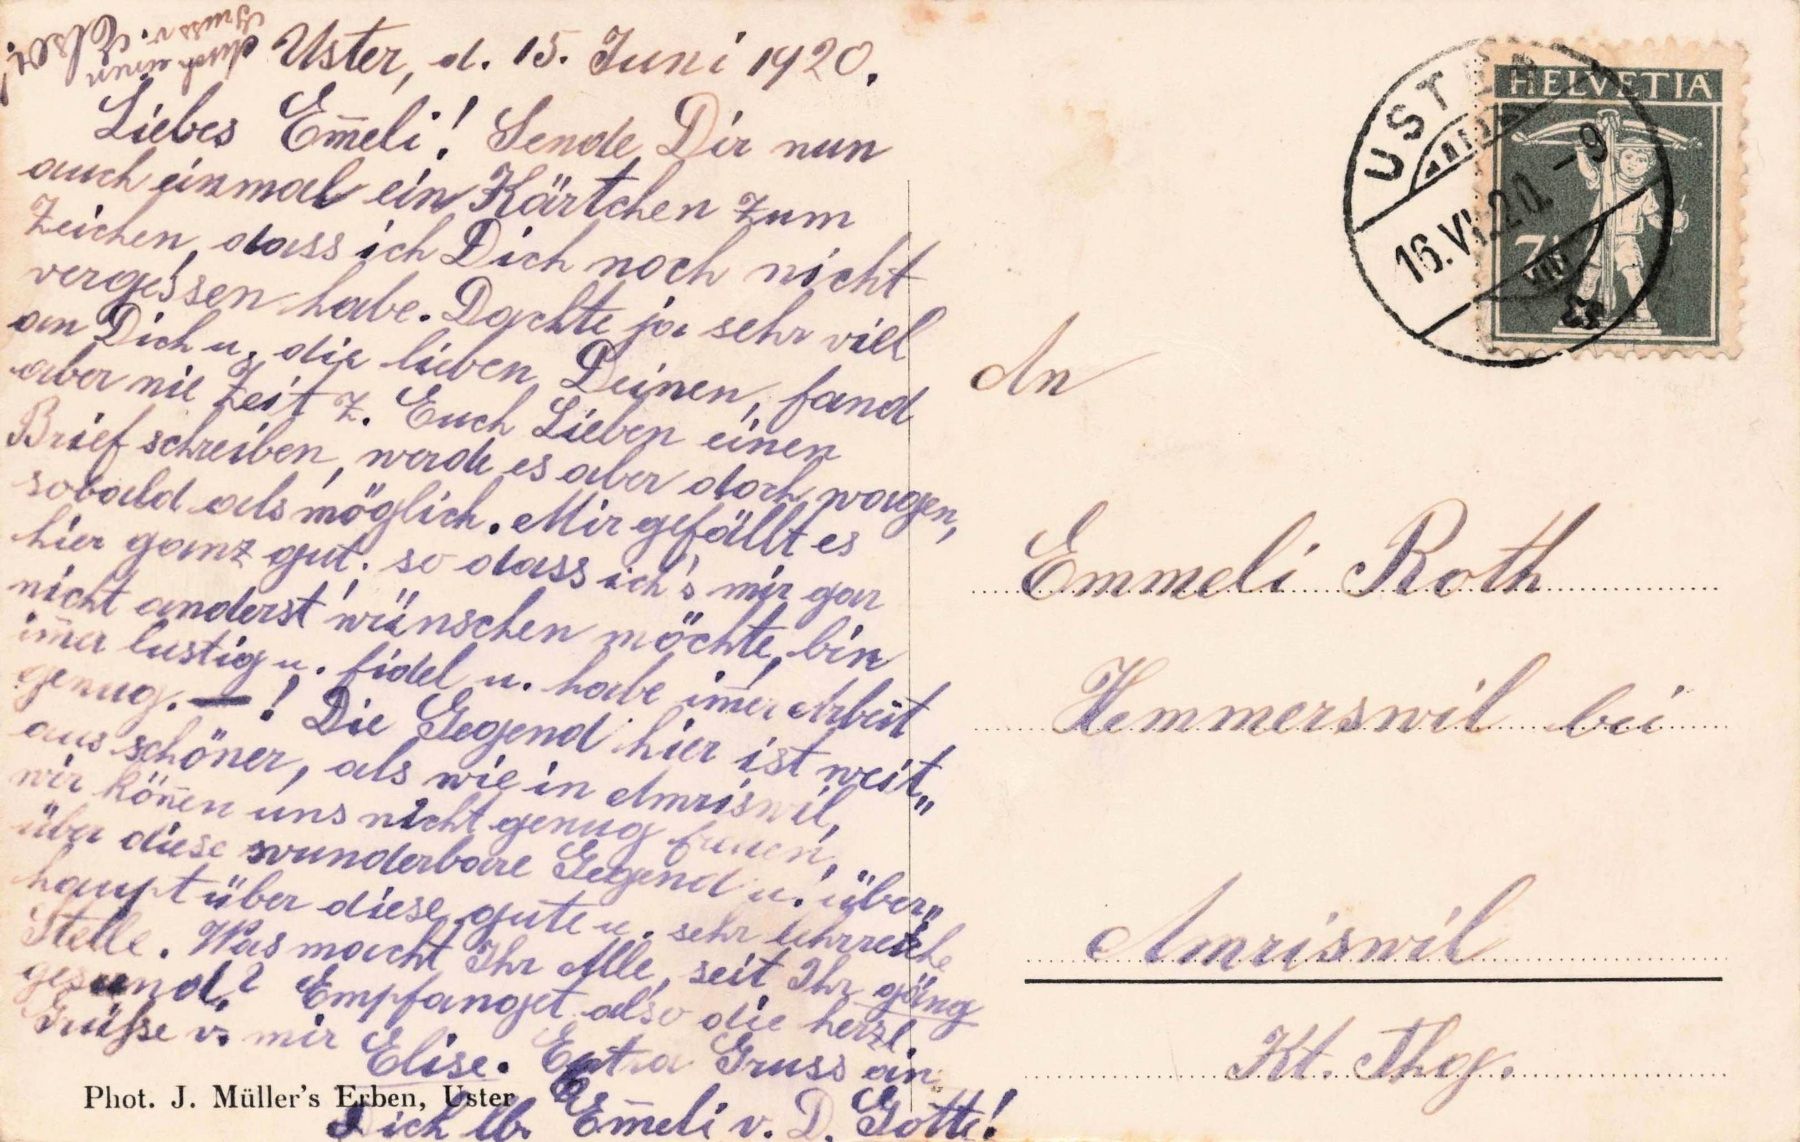 Uster, d. 15. Juni 1920.
Liebes Em̄eli! Sende Dir nun
auch einmal ein Kärtchen zum
Zeichen, dass ich Dich noch nicht
vergessen habe. Dachte ja sehr viel
an Dich u. die lieben Deinen, fand
aber nie Zeit z. Euch Lieben einen
Brief schreiben, werde es aber doch wagen,
sobald als möglich. Mir gefällt es
hier ganz gut. so dass ich's mir gar
nicht anderst wünschen möchte, bin
im̄er lustig u. fidel u. habe im̄er Arbeit
genug. —! Die Gegend hier ist weit„
aus schöner, als wie in Amriswil,
wir kön̄en uns nicht genug freuen,
über diese wunderbare Gegend u. über„
haupt über diese gute u. sehr lehrreiche
Stelle. Was macht Ihr Alle, seit Ihr gäng
gesund? Empfanget also die herzl.
Grüsse v. mir Elise. Extra Gruss an
Dich lb. Em̄eli v. D. Gotte!
durch einen
Gruss v.
Phot. J. Müller's Erben, Uster
HELVETIA
7½
USTER
16.VI.20.-9
VIII
An
Emmeli Roth
Hemmerswil bei
Amriswil
Kt. Thg.